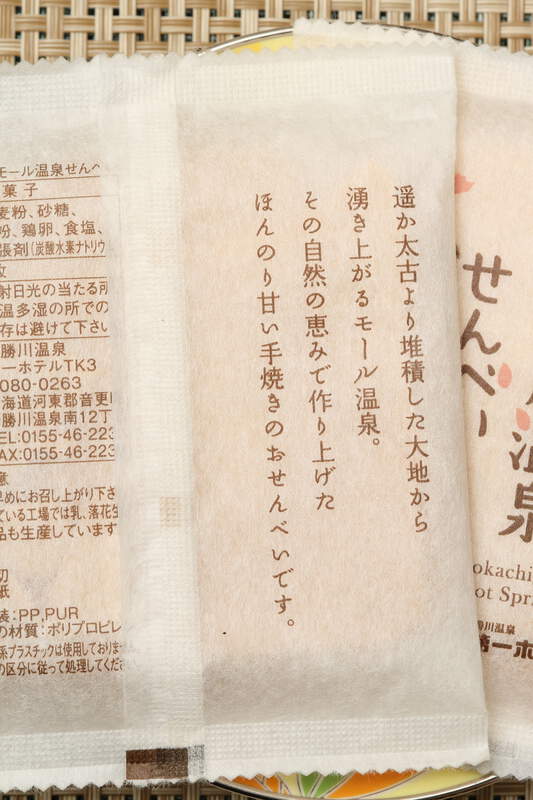 遥か太古より堆積した大地から
湧き上がるモール温泉。
その自然の恵みで作り上げた
ほんのり甘い手焼きのおせんべいです。
モール温泉せんべ
菓子
麦粉、砂糖、
粉、鶏卵、食塩、
張剤(炭酸水素ナトリウ
枚
射日光の当たる所
温多湿の所での
存は避けて下さい
勝川温泉
ーホテルTK3
080-0263
海道河東郡音更
勝川温泉南12丁
EL:0155-46-223
AX:0155-46-223
意
早めにお召し上がり下さ
ている工場では乳、落花生
品も生産しています
切
紙
装:PP,PUR
の材質:ポリプロピレ
系プラスチックは使用しておりませ
の区分に従って処理してくだ
せんべー
温泉
okachi
ot Spr
勝川温泉
第一ホ